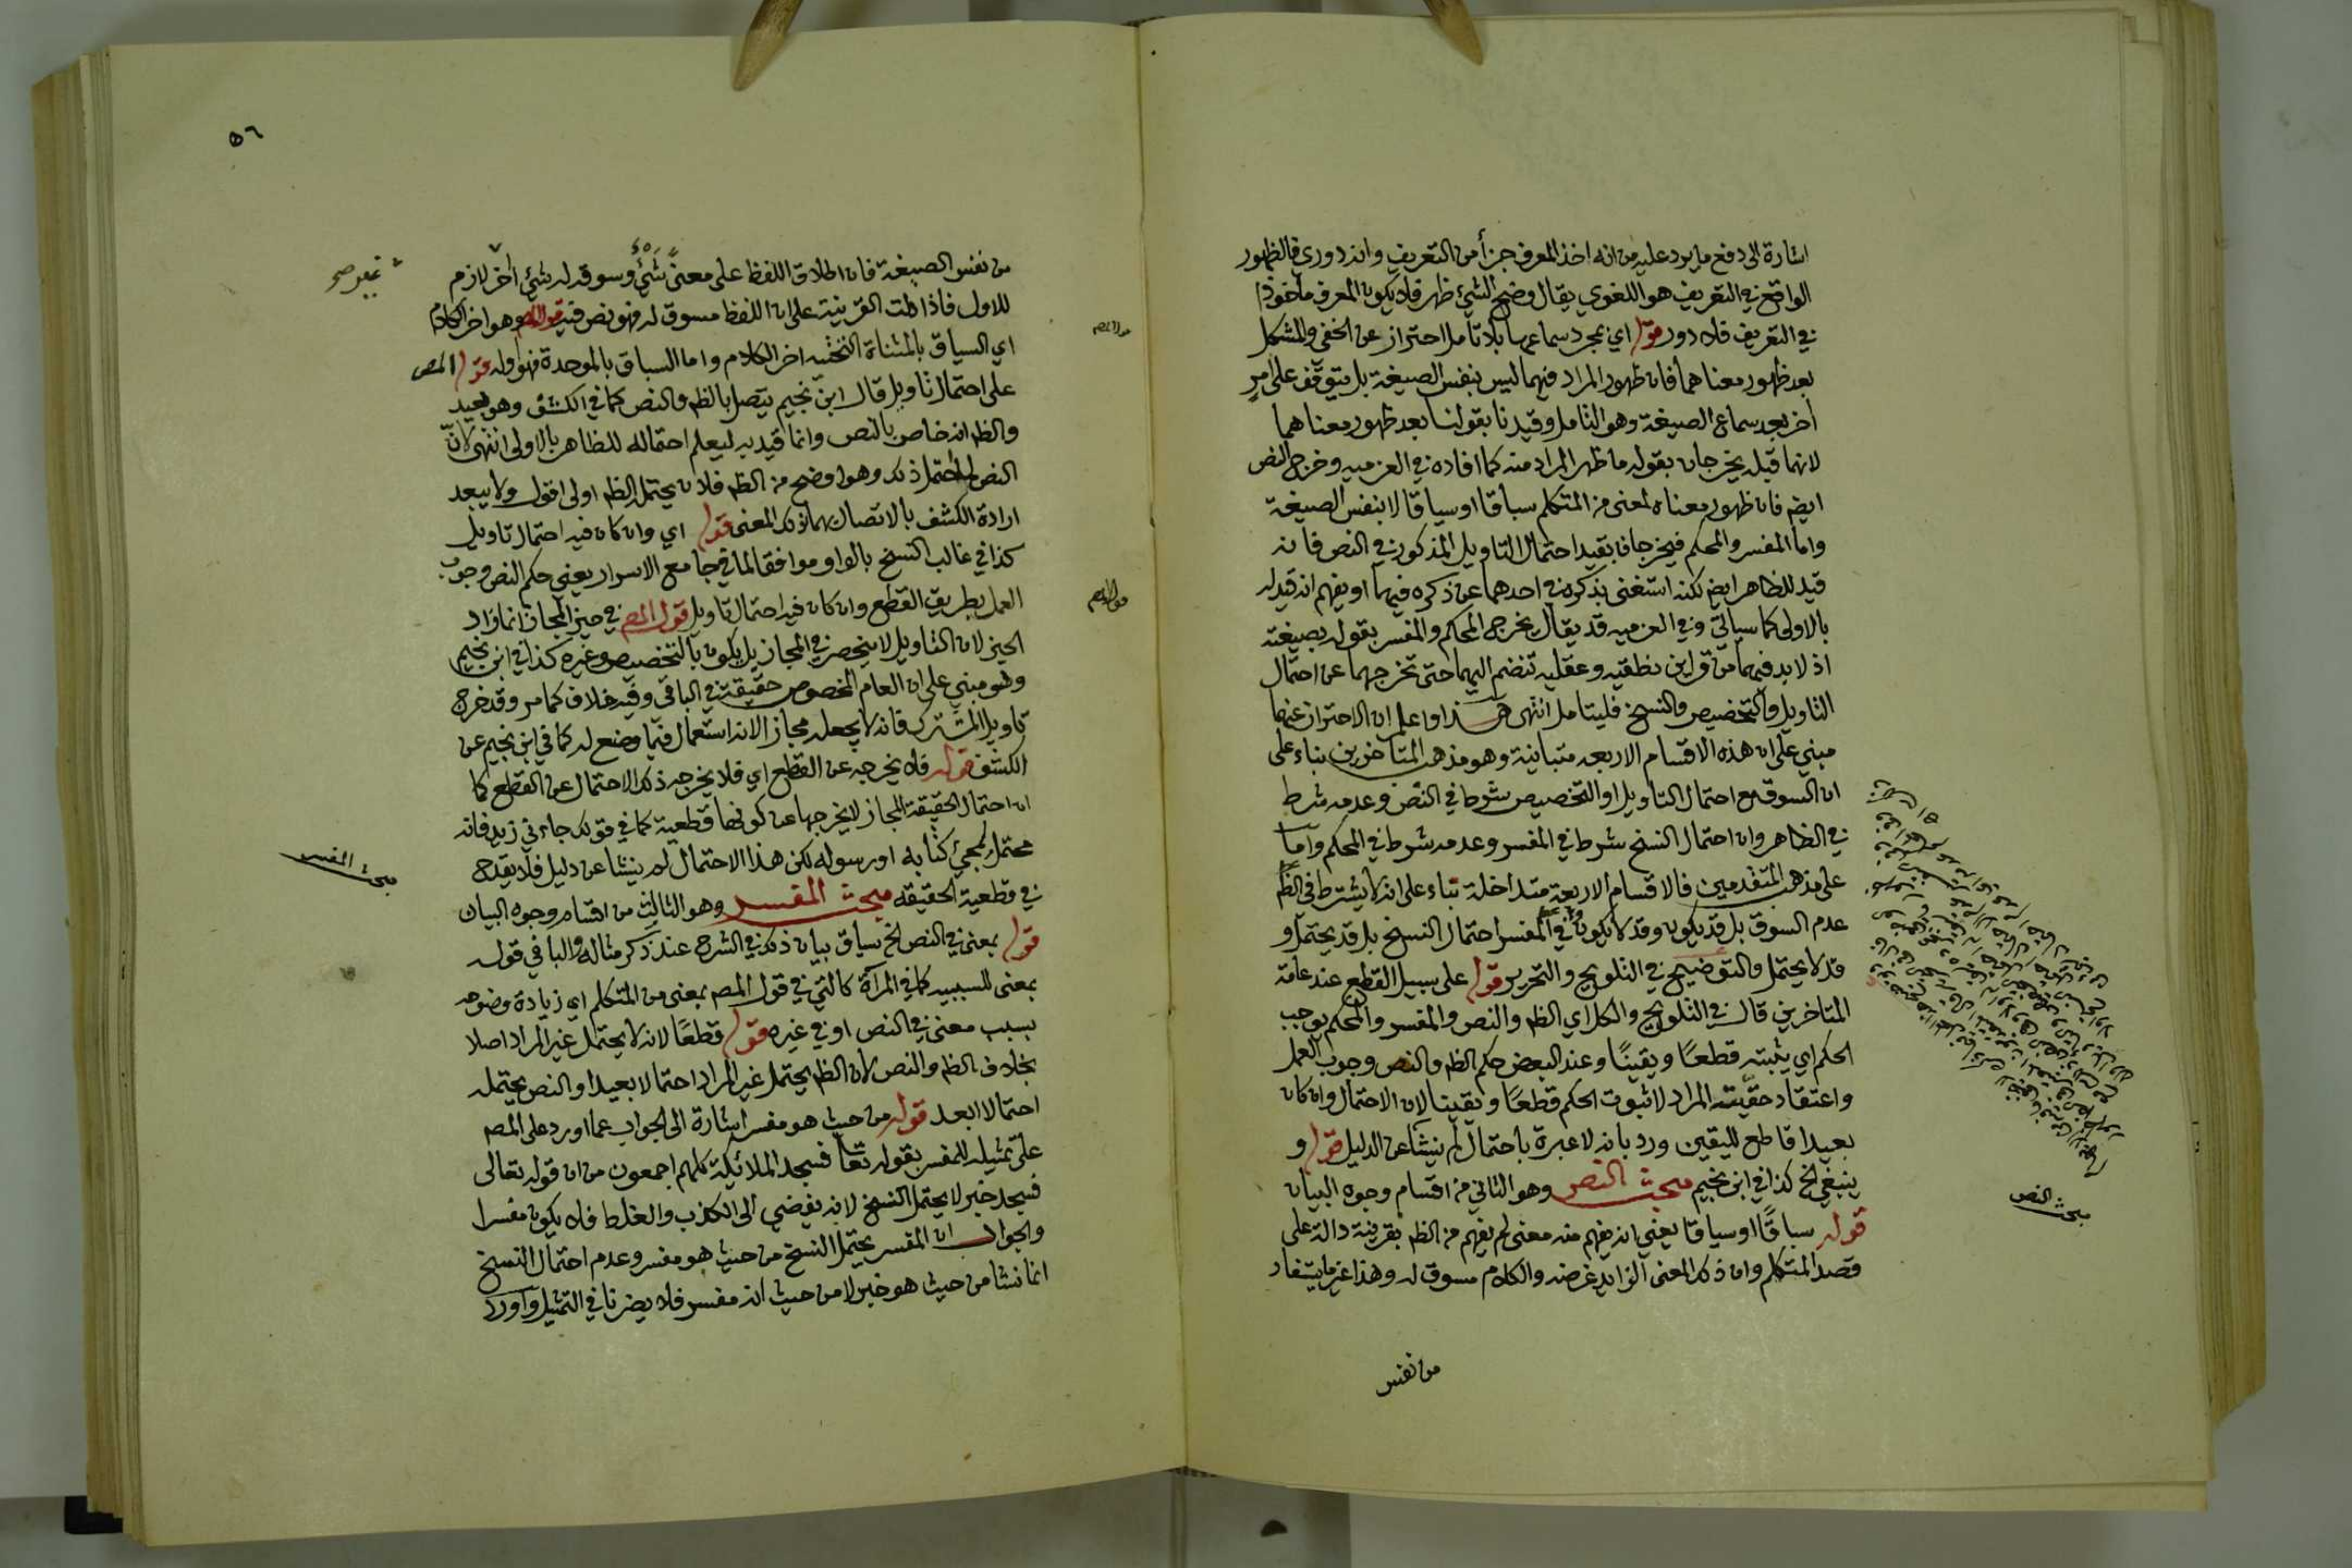 اشارة الى دفع ما يرد عليه من انه اخذ المعرف جزأ من التعريف وانه دوري فالظهور
الواقع في التعريف هو اللغوي يقال وضح الشئ ظهر فلا يكون المعرف مأخوذا
في التعريف فلا دور قوله اي بمجرد سماعها بلا تأمل احتراز عن الخفي والمشكل
بعد ظهور معناهما فان ظهور المراد فيهما ليس بنفس الصيغة بل يتوقف على امرٍ
اخر بعد سماع الصيغة وهو التامل وقيدنا بقولنا بعد ظهور معناهما
لانهما قبله يخرجان بقوله ما ظهر المراد منه كما افاده في العزميه وخرج النص
ايضا فان ظهور معناه لمعنى من المتكلم سباقا او سياقا لا بنفس الصيغة
واما المفسر والمحكم فيخرجان بقيد احتمال التاويل المذكور في النص فانه
قيد للظاهر ايض لكنه استغنى بذكره في احدهما عن ذكره فيهما او يفهم انه قيد له
بالاولى كما سياتي وفي العزميه قد يقال يخرج المحكم والمفسر بقوله بصيغته
اذ لابد فيهما من قراين نطقيه وعقليه تنضم اليهما حتى تخرجهما عن احتمال
التاويل والتخصيص والنسخ فليتامل انتهى هذا واعلم ان الاحتراز عنهما
مبني على ان هذه الاقسام الاربعه متباينة وهو مذهب المتاخرين بناء على
ان السوق مع احتمال التاويل او التخصيص شرط في النص وعدمه شرط
في الظاهر وان احتمال النسخ شرط في المفسر وعدمه شرط في المحكم واما
على مذهب المتقدمين فالاقسام الاربعة متداخلة بناء على انه لا يشترط في الظم
عدم السوق بل قد يكون وقد لا يكون ولا في المفسر احتمال النسخ بل قد يحتمل و
قد لا يحتمل والتوضيح في التلويح والتحرير قوله على سبيل القطع عند عامة
المتاخرين قال في التلويح والكل اي الظم والنص والمفسر والمحكم يوجب
الحكم اي يثبته قطعًا ويقينًا وعند البعض حكم الظم والنص وجوب العمل
واعتقاد حقيّته المراد لا ثبوت الحكم قطعًا ويقينا لان الاحتمال وان كان
بعيدا قاطع لليقين ورد بانه لا عبرة باحتمال لم ينشأ عن الدليل قوله و
ينبغي الخ كذا في ابن نجيم مبحث النص وهو الثاني من اقسام وجوه البيان
قوله سباقًا او سياقا يعني انه يفهم منه معنى لم يفهم من الظم بقرينة دالة على
قصد المتكلم وان ذلك المعنى الزائد غرضه والكلام مسوق له وهذا غير ما يستفاد
مبحث النص
من نفس
٥٦
من نفس الصيغة فان اطلاق اللفظ على معنىً شئ وسوقه له شئ اخر لازم
للاول فاذا دلت القرينة على ان اللفظ مسوق له فهو نص فيه قوله وهو اخر الكلام
اي السياق بالمثناة التحتيه اخر الكلام واما السباق بالموحدة فهو اوله قول المص
على احتمال تاويل قال ابن نجيم يتصل بالظم والنص كما في الكشف وهو بعيد
والظم انه خاص بالنص وانما قيد به ليعلم احتماله للظاهر بالاولى انتهى لانّ
النص لما احتمل ذلك وهو اوضح من الظم فلان يحتمل الظم اولى اقول ولا يبعد
ارادة الكشف بالاتصال بهما ذلك المعنى قوله اي وان كان فيه احتمال تاويل
كذا في غالب النسخ بالواو موافقا لما في جامع الاسرار يعني حكم النص وجوب
العمل بطريق القطع وان كان فيه احتمال تاويل قول المص في حيز المجاز انما زاد
الحيز لان التاويل لا ينحصر في المجاز بل يكون بالتخصيص وغيره كذا في ابن نجيم
وهو مبني على ان العام المخصوص حقيقة في الباقي وفيه خلاف كما مر وقد خرج
تاويل المشترك فانه لا يجعله مجازا لانه استعمال فيما وضع له كما في ابن نجيم عن
الكشف قوله فلا يخرجه عن القطع اي فلا يخرجه ذلك الاحتمال عن القطع كما
ان احتمال الحقيقة المجاز لا يخرجها عن كونها قطعية كما في قولك جاءني زيد فانه
محتمل لمجئ كتابه او رسوله لكن هذا الاحتمال لم ينشا عن دليل فلا يقدح
في قطعية الحقيقه مبحث المفسر وهو الثالث من اقسام وجوه البيان
قوله بمعنى في النص الخ سياق بيان ذلك في الشرح عند ذكر مثاله والبا في قوله
بمعنى للسببيه كما في المرآة كالتي في قول المص بمعنى من المتكلم اي زيادة وضوحه
بسبب معنى في النص او في غيره قوله قطعًا لانه لا يحتمل غير المراد اصلا
بخلاف الظم والنص لان الظم يحتمل غير المراد احتمالا بعيدا والنص يحتمله
احتمالا ابعد قوله من حيث هو مفسر اشارة الى الجواب عما اورد على المص
على تمثيله للمفسر بقوله تعا فسجد الملائكة كلهم اجمعون من ان قوله تعالى
فسجد خبر لا يحتمل النسخ لانه يفضي الى الكذب والغلط فلا يكون مفسرا
والجواب ان المفسر يحتمل النسخ من حيث هو مفسر وعدم احتمال النسخ
انما نشا من حيث هو خبر لا من حيث انه مفسر فلا يضرنا في التمثيل واورد
مبحث المفسر